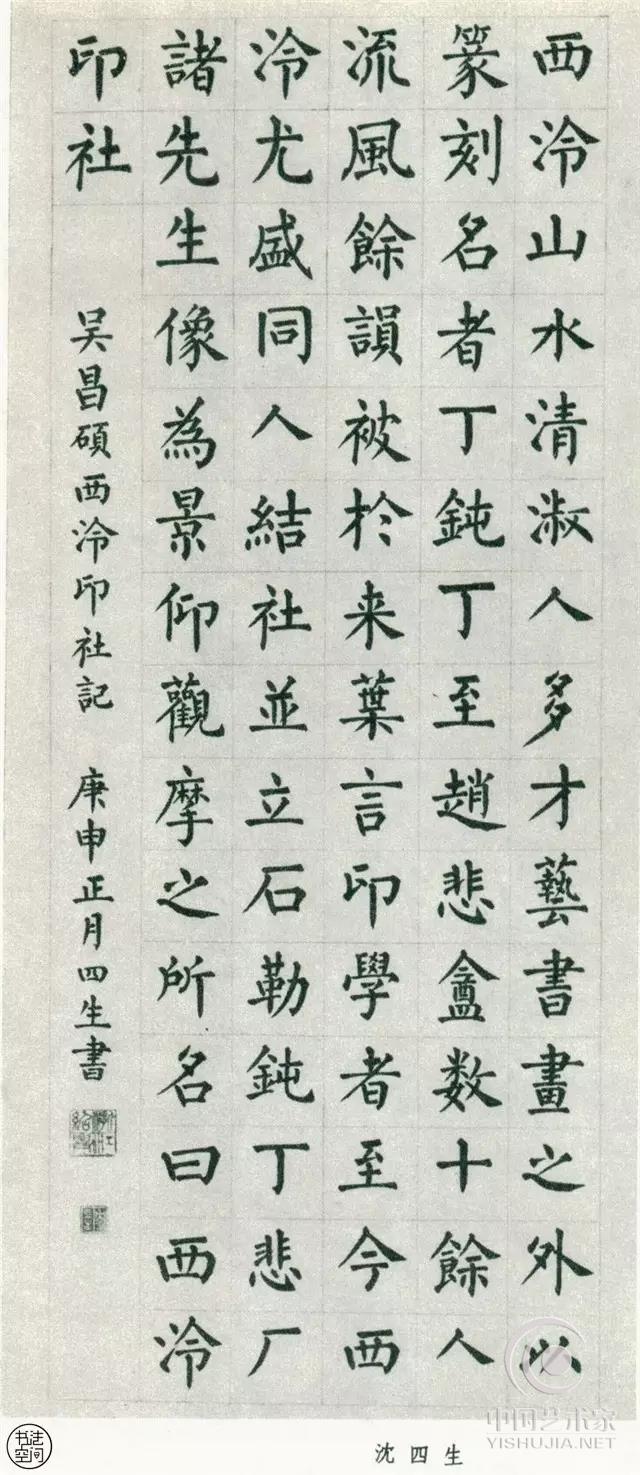 西泠山水清淑人多才藝書畫之外以
篆刻名者丁鈍丁至趙悲盦数十餘人
流風餘韻被於来葉言印學者至今西
泠尤盛同人結社並立石勒鈍丁悲厂
諸先生像為景仰觀摩之所名曰西泠
印社
吴昌碩西泠印社記 庚申正月四生書
中国艺术家
YISHUJIA.NET
书法
空间
沈四生